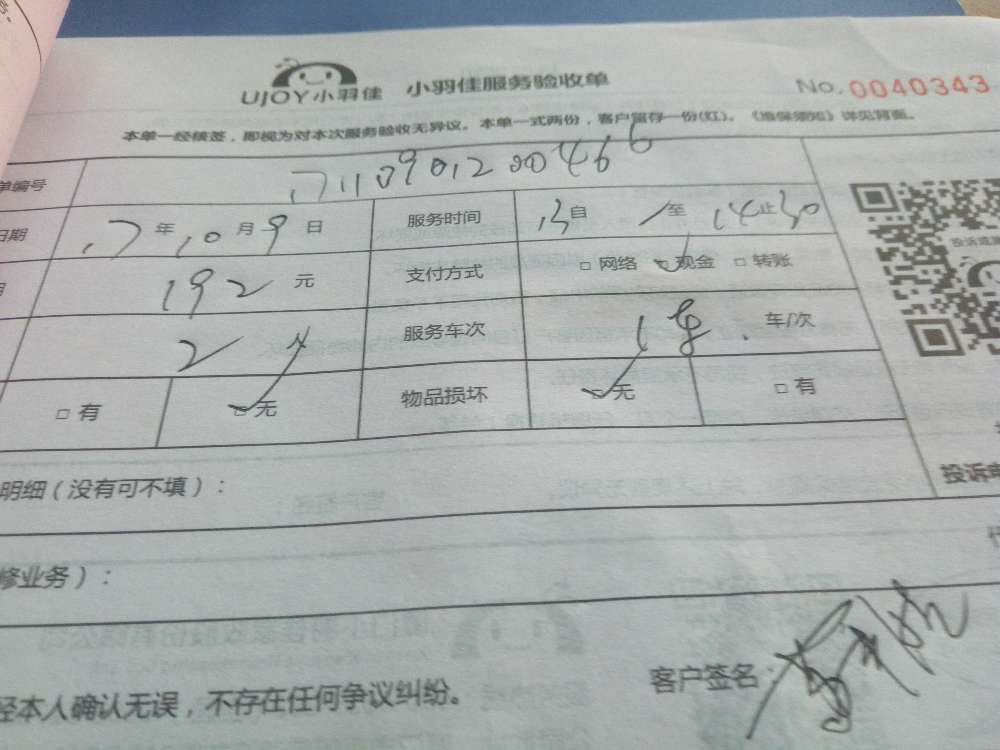 UJOY小羽佳 小羽佳服务验收单 No. 0040343
本单一经核签，即视为对本次服务验收无异议。本单一式两份，客户留存一份(红)。《维保须知》详见背面。
单编号 17110901200466
日期 17年10月9日 服务时间 13自 至 14止30
192 元 支付方式 □网络 ☑现金 □转账
2人 服务车次 1车 车/次
□有 ☑无 物品损坏 ☑无 □有
投诉或
明细（没有可不填）： 投诉电
修业务）：
客户签名：
经本人确认无误，不存在任何争议纠纷。